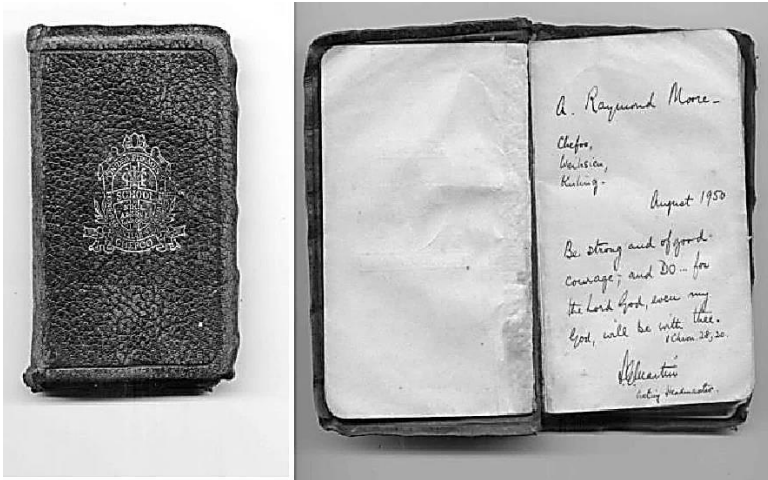 SCHOOL
CHEFOO
A. Raymond Moore -
Chefoo,
Weihsien,
Kuling -
August 1950
Be strong and of good
courage, and DO ... for
the Lord God, even my
God, will be with thee.
1 Chron. 28, 20.
Martin
Acting Headmaster.